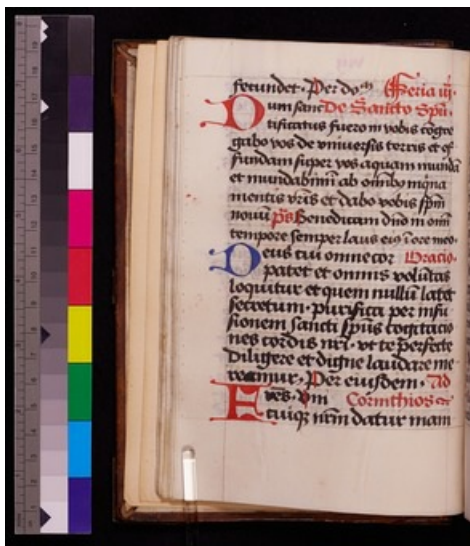 fecundet. Per dom Feria iij.
Dum sanc De Sancto Spū.
tificatus fuero in vobis cōgre
gabo vos de vniuersis terris et ef
fundam super vos aquam mundā
et mundabimī ab omībꝫ inqna
mentis vr̄is et dabo vobis sp̄m
nouū p̄s Benedicam dn̄o in om̄
tempore semper laus eiꝰ ī ore meo.
Deus cui omne cor Oracio.
patet et omnis volūtas
loquitur et quem nullū latet
secretum. purifica per infu
sionem sancti sp̄us cogitacio
nes cordis nr̄i. vt te p̄fecte
diligere et digne laudare me
reamur. Per eiusdem. Ad
Corinthios
cuiqꝫ nr̄m datur mani